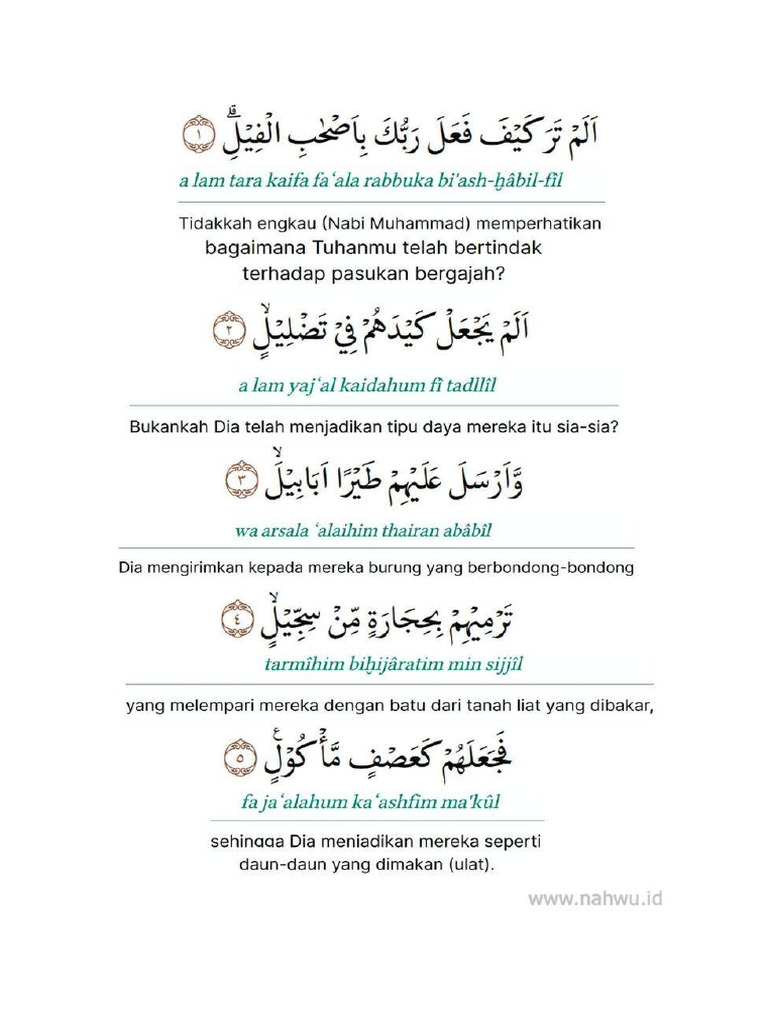 اَلَمْ تَرَ كَيْفَ فَعَلَ رَبُّكَ بِاَصْحٰبِ الْفِيْلِۗ ١
a lam tara kaifa fa‘ala rabbuka bi'ash-ḫâbil-fîl
Tidakkah engkau (Nabi Muhammad) memperhatikan
bagaimana Tuhanmu telah bertindak
terhadap pasukan bergajah?
اَلَمْ يَجْعَلْ كَيْدَهُمْ فِيْ تَضْلِيْلٍۙ ٢
a lam yaj‘al kaidahum fî tadllîl
Bukankah Dia telah menjadikan tipu daya mereka itu sia-sia?
وَّاَرْسَلَ عَلَيْهِمْ طَيْرًا اَبَابِيْلَۙ ٣
wa arsala ‘alaihim thairan abâbîl
Dia mengirimkan kepada mereka burung yang berbondong-bondong
تَرْمِيْهِمْ بِحِجَارَةٍ مِّنْ سِجِّيْلٍۙ ٤
tarmîhim biḫijâratim min sijjîl
yang melempari mereka dengan batu dari tanah liat yang dibakar,
فَجَعَلَهُمْ كَعَصْفٍ مَّأْكُوْلٍࣖ ٥
fa ja‘alahum ka‘ashfim ma'kûl
sehingga Dia menjadikan mereka seperti
daun-daun yang dimakan (ulat).
www.nahwu.id